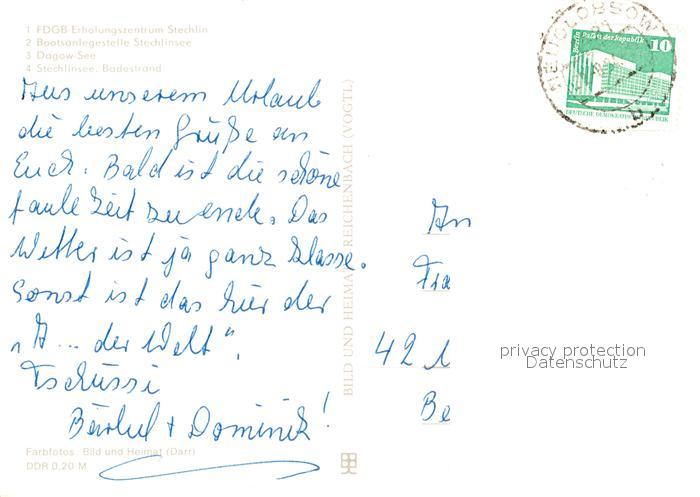 1 FDGB-Erholungszentrum Stechlin
2 Bootsanlegestelle Stechlinsee
3 Dagow-See
4 Stechlinsee, Badestrand
Aus unserem Urlaub
die besten Grüße an
Euch. Bald ist die schöne
faule Zeit zu ende. Das
Wetter ist ja ganz klasse.
Sonst ist das hier der
„A... der Welt".
Tschüssi
Bärbel + Dominik!
Farbfotos: Bild und Heimat (Darr)
DDR 0,20 M
BILD UND HEIMAT REICHENBACH (VOGTL)
NEUGLOBSOW
Berlin Palast der Republik
10
DEUTSCHE DEMOKRATISCHE REPUBLIK
An
Fra
42
Be
privacy protection
Datenschutz